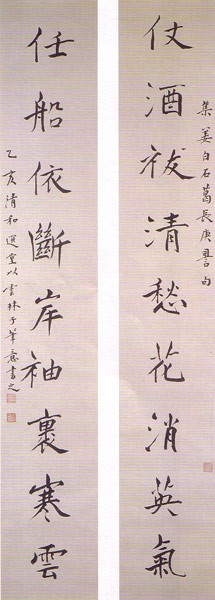 集姜白石葛長庚詞句
仗酒祓清愁花消英氣
任船依斷岸袖裹寒雲
乙亥清和選堂以雲林子筆意書之